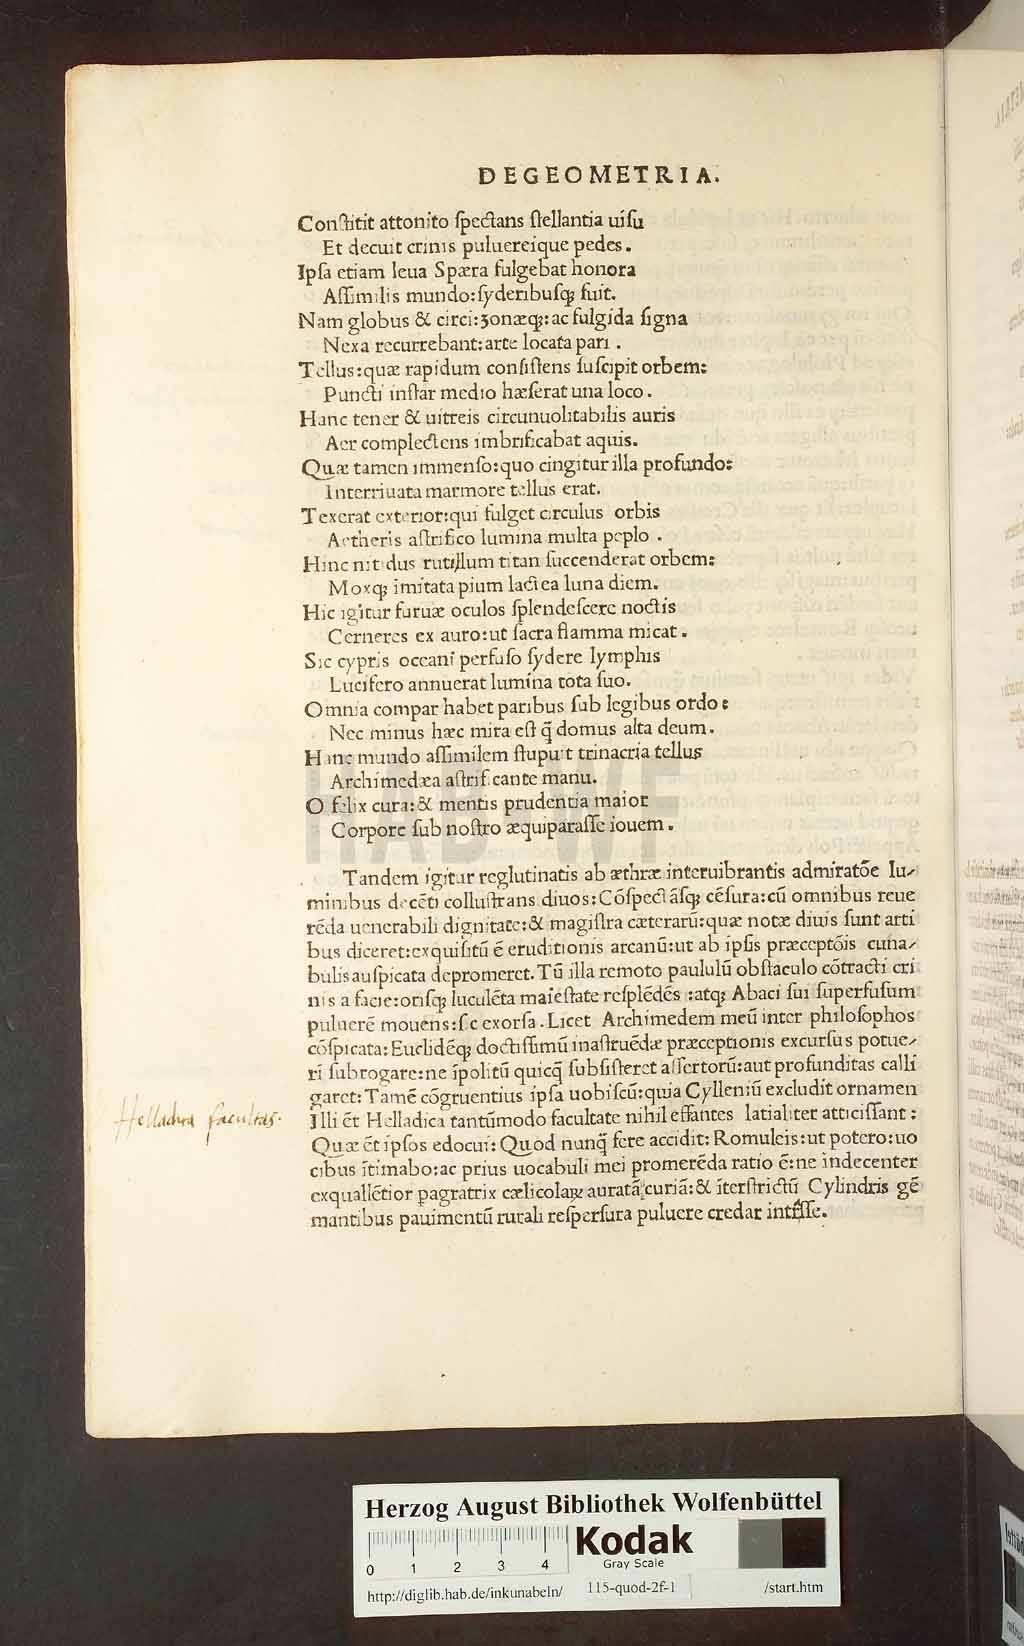 DEGEOMETRIA.
Conſtitit attonito ſpectans ſtellantia uiſu
Et decuit crinis puluereique pedes.
Ipſa etiam leua Spæra fulgebat honora
Aſſimilis mundo:ſyderibuſqꝫ fuit.
Nam globus & circi:zonæqꝫ:ac fulgida ſigna
Nexa recurrebant:arte locata pari.
Tellus:quæ rapidum conſiſtens ſuſcipit orbem:
Puncti inſtar medio hæſerat una loco.
Hanc tener & uitreis circunuolitabilis auris
Aer complectens imbrificabat aquis.
Quæ tamen immenſo:quo cingitur illa profundo:
Interriuata marmore tellus erat.
Texerat exterior:qui fulget circulus orbis
Aetheris aſtrifico lumina multa peplo.
Hinc nitidus rutillum titan ſuccenderat orbem:
Moxqꝫ imitata pium lactea luna diem.
Hic igitur furuæ oculos ſplendeſcere noctis
Cerneres ex auro:ut ſacra flamma micat.
Sic cypris oceani perfuſo ſydere lymphis
Lucifero annuerat lumina tota ſuo.
Omnia compar habet paribus ſub legibus ordo:
Nec minus hæc mira eſt q̄ domus alta deum.
Hanc mundo aſſimilem ſtupuit trinacria tellus
Archimedæa aſtrificante manu.
O felix cura:& mentis prudentia maior
Corpore ſub noſtro æquiparaſſe iouem.
Tandem igitur reglutinatis ab æthræ interuibrantis admiratōe lu-
minibus decēti colluſtrans diuos:Cōſpectāſqꝫ cēſura:cū omnibus reue
rēda uenerabili dignitate:& magiſtra cæterarū:quæ notæ diuis ſunt arti
bus diceret:exquiſitū ē eruditionis arcanū:ut ab ipſis præceptōis cuna-
bulis auſpicata depromeret.Tū illa remoto paululū obſtaculo cōtracti cri
nis a facie:oriſqꝫ luculēta maieſtate reſplēdēs:atqꝫ Abaci ſui ſuperfuſum
puluerē mouens:ſic exorſa.Licet Archimedem meū inter philoſophos
cōſpicata:Euclidēqꝫ doctiſſimū inaſtruēdæ præceptionis excurſus potue-
ri ſubrogare:ne īpolitū quicq̄ ſubſiſteret aſſertorū:aut profunditas calli
garet:Tamē cōgruentius ipſa uobiſcū:quia Cylleniū excludit ornamen
Illi ēt Helladica tantūmodo facultate nihil effantes latialiter atticiſſant:
Quæ ēt ipſos edocui:Quod nunq̄ fere accidit:Romuleis:ut potero:uo
cibus ītimabo:ac prius uocabuli mei promerēda ratio ē:ne indecenter
exquallētior pagratrix cælicolaꝝ auratā curiā:& īterſtrictū Cylindris gē
mantibus pauimentū rurali reſperſura puluere credar inteſſe.
Helladica facultas.
HAB WF
Herzog August Bibliothek Wolfenbüttel
0 1 2 3 4
Kodak
Gray Scale
http://diglib.hab.de/inkunabeln/ 115-quod-2f-1 /start.htm